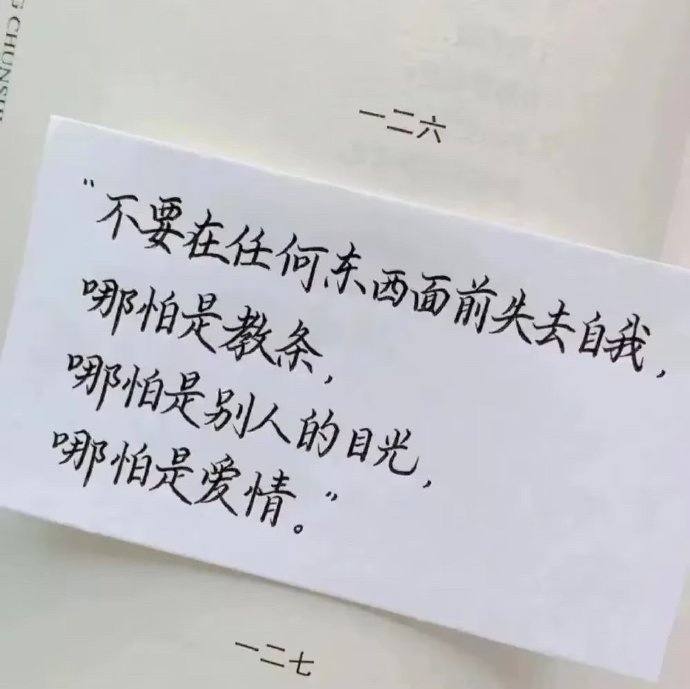 G CHUNSHU
一二六
“不要在任何东西面前失去自我，
哪怕是教条，
哪怕是别人的目光，
哪怕是爱情。”
一二七